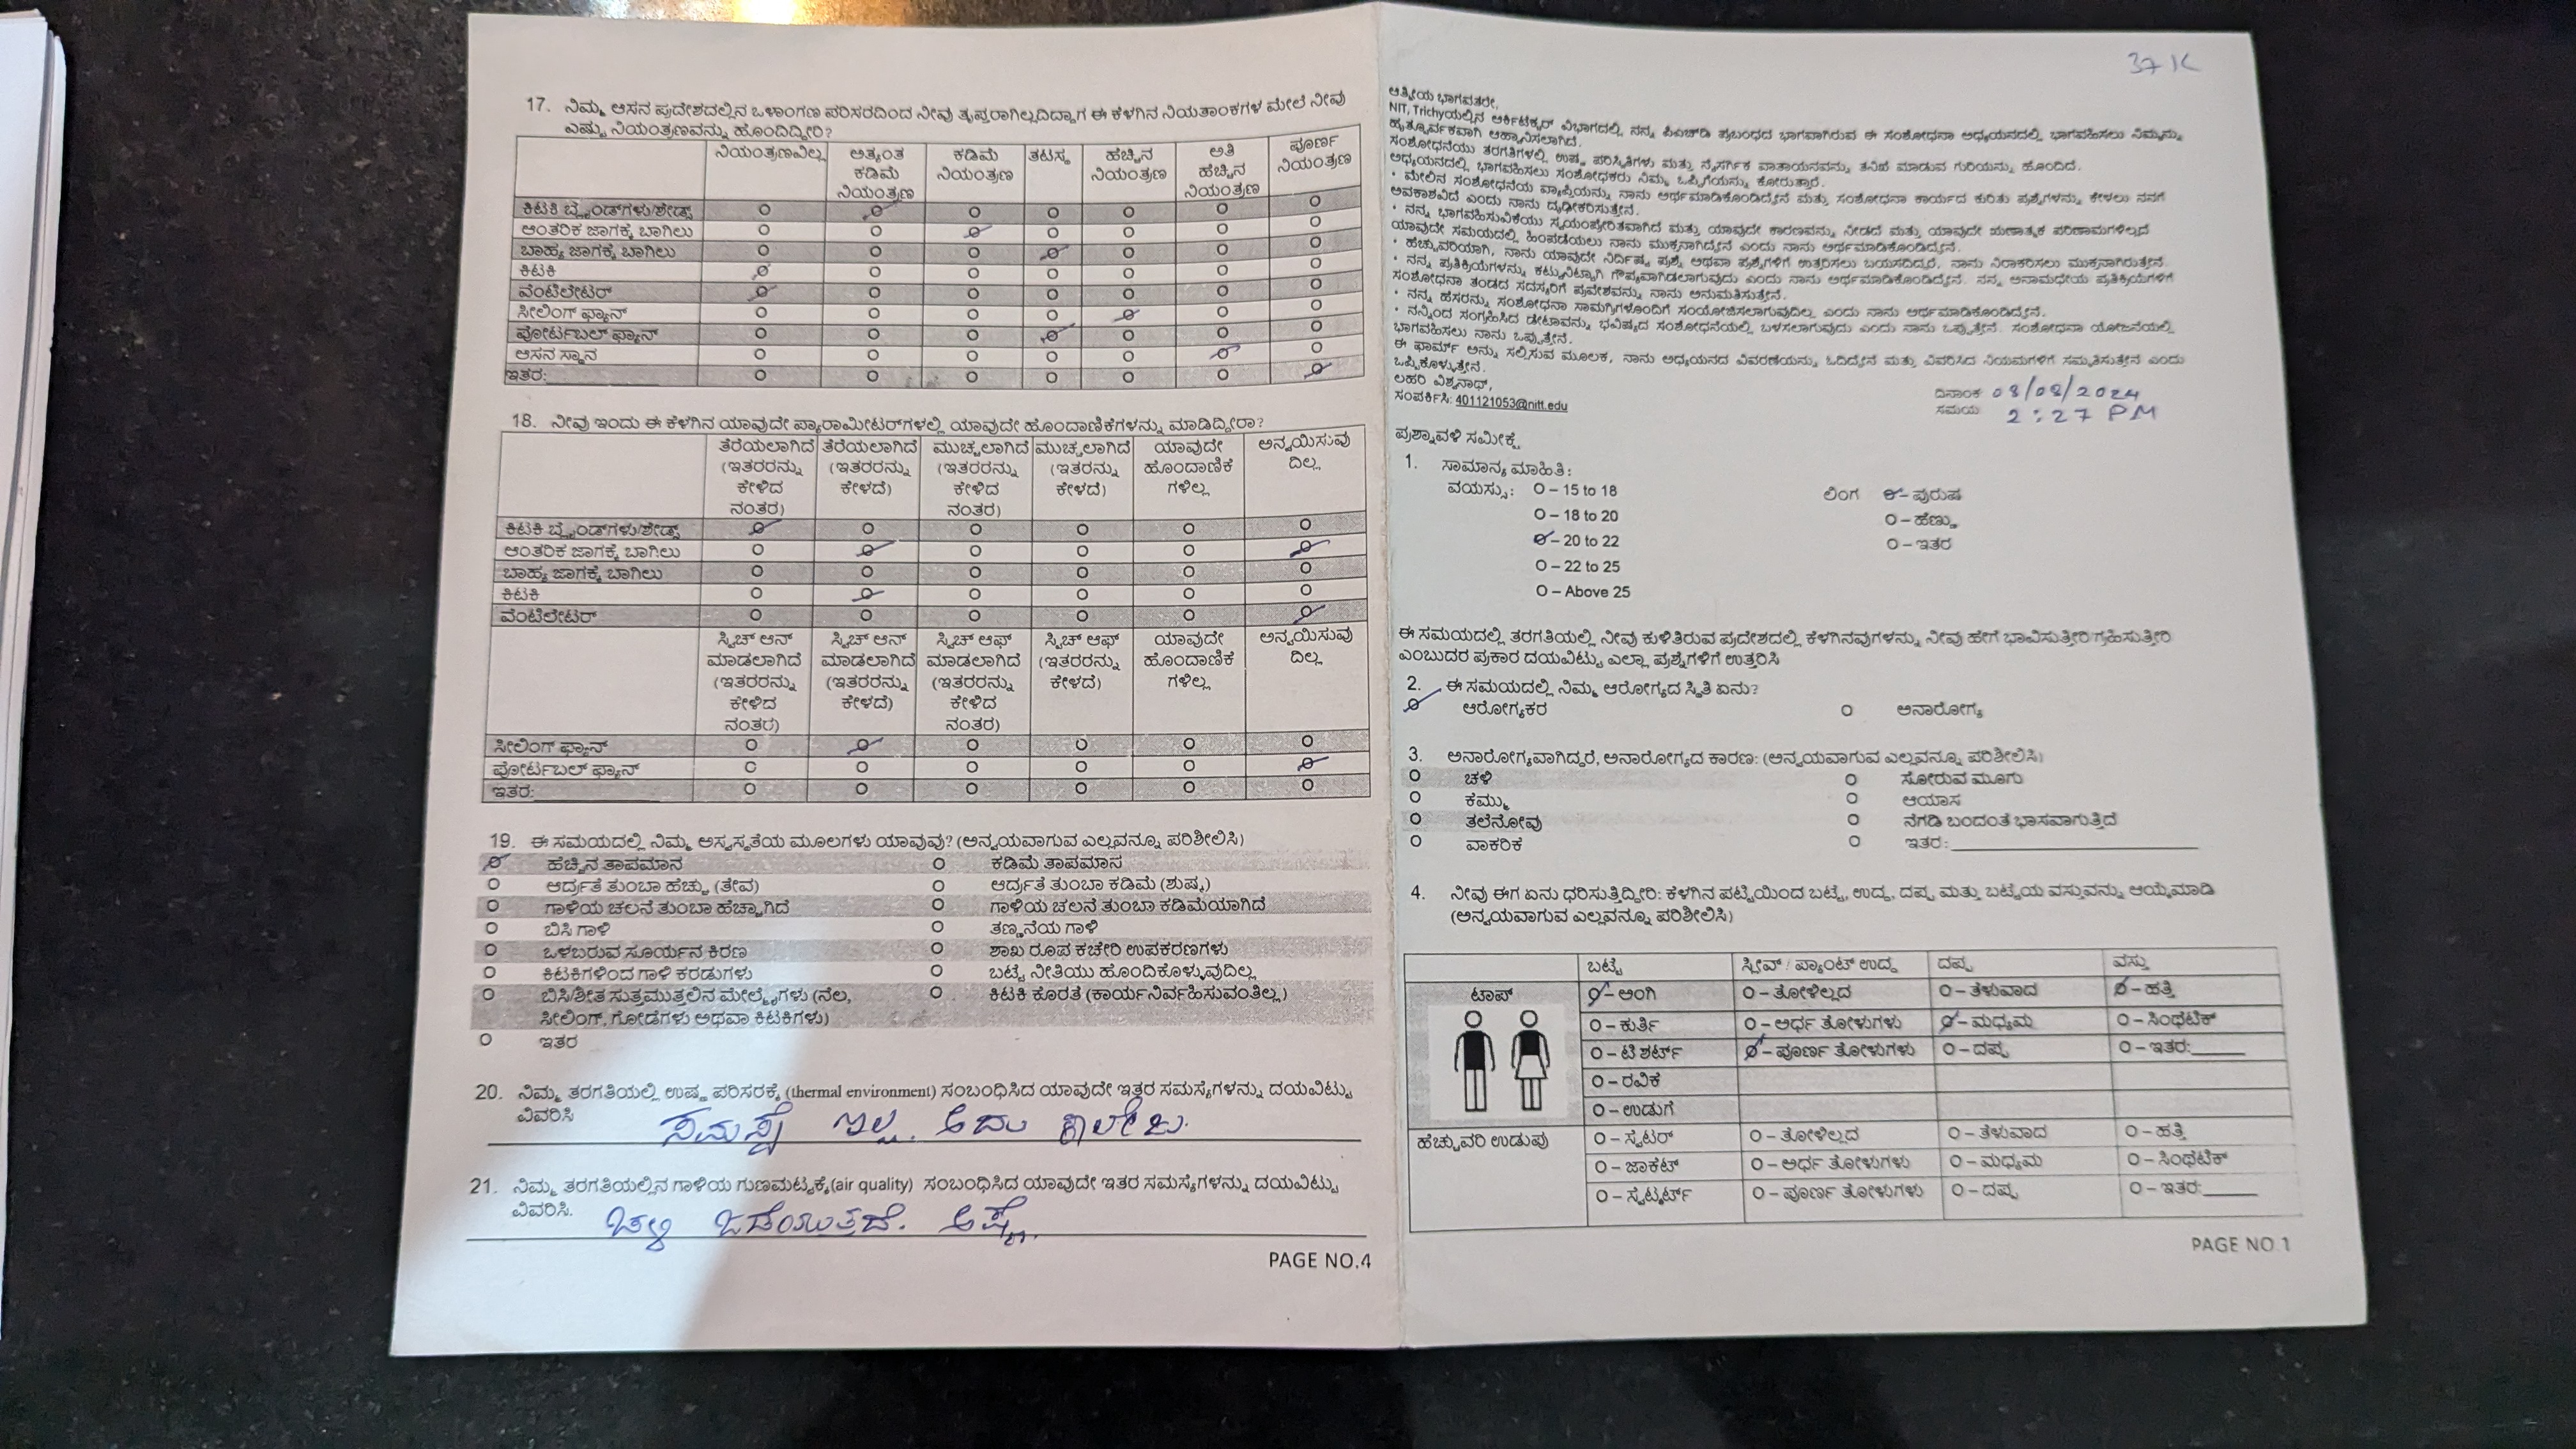 17. ನಿಮ್ಮ ಆಸನ ಪ್ರದೇಶದಲ್ಲಿನ ಒಳಾಂಗಣ ಪರಿಸರದಿಂದ ನೀವು ತೃಪ್ತರಾಗಿಲ್ಲದಿದ್ದಾಗ ಈ ಕೆಳಗಿನ ನಿಯತಾಂಕಗಳ ಮೇಲೆ ನೀವು
ಎಷ್ಟು ನಿಯಂತ್ರಣವನ್ನು ಹೊಂದಿದ್ದೀರಿ?
ನಿಯಂತ್ರಣವಿಲ್ಲ ಅತ್ಯಂತ ಕಡಿಮೆ ನಿಯಂತ್ರಣ ಕಡಿಮೆ ನಿಯಂತ್ರಣ ತಟಸ್ಥ ಹೆಚ್ಚಿನ ನಿಯಂತ್ರಣ ಅತಿ ಹೆಚ್ಚಿನ ನಿಯಂತ್ರಣ ಪೂರ್ಣ ನಿಯಂತ್ರಣ
ಕಿಟಕಿ ಬ್ಲೈಂಡ್‌ಗಳು/ಶೇಡ್ಸ್
ಆಂತರಿಕ ಜಾಗಕ್ಕೆ ಬಾಗಿಲು
ಬಾಹ್ಯ ಜಾಗಕ್ಕೆ ಬಾಗಿಲು
ಕಿಟಕಿ
ವೆಂಟಿಲೇಟರ್
ಸೀಲಿಂಗ್ ಫ್ಯಾನ್
ಪೋರ್ಟಬಲ್ ಫ್ಯಾನ್
ಆಸನ ಸ್ಥಾನ
ಇತರ:
18. ನೀವು ಇಂದು ಈ ಕೆಳಗಿನ ಯಾವುದೇ ಪ್ಯಾರಾಮೀಟರ್‌ಗಳಲ್ಲಿ ಯಾವುದೇ ಹೊಂದಾಣಿಕೆಗಳನ್ನು ಮಾಡಿದ್ದೀರಾ?
ತೆರೆಯಲಾಗಿದೆ (ಇತರರನ್ನು ಕೇಳಿದ ನಂತರ) ತೆರೆಯಲಾಗಿದೆ (ಇತರರನ್ನು ಕೇಳದೆ) ಮುಚ್ಚಲಾಗಿದೆ (ಇತರರನ್ನು ಕೇಳಿದ ನಂತರ) ಮುಚ್ಚಲಾಗಿದೆ (ಇತರರನ್ನು ಕೇಳದೆ) ಯಾವುದೇ ಹೊಂದಾಣಿಕೆ ಗಳಿಲ್ಲ ಅನ್ವಯಿಸುವು ದಿಲ್ಲ
ಕಿಟಕಿ ಬ್ಲೈಂಡ್‌ಗಳು/ಶೇಡ್ಸ್
ಆಂತರಿಕ ಜಾಗಕ್ಕೆ ಬಾಗಿಲು
ಬಾಹ್ಯ ಜಾಗಕ್ಕೆ ಬಾಗಿಲು
ಕಿಟಕಿ
ವೆಂಟಿಲೇಟರ್
ಸ್ವಿಚ್ ಆನ್ ಮಾಡಲಾಗಿದೆ (ಇತರರನ್ನು ಕೇಳಿದ ನಂತರ) ಸ್ವಿಚ್ ಆನ್ ಮಾಡಲಾಗಿದೆ (ಇತರರನ್ನು ಕೇಳದೆ) ಸ್ವಿಚ್ ಆಫ್ ಮಾಡಲಾಗಿದೆ (ಇತರರನ್ನು ಕೇಳಿದ ನಂತರ) ಸ್ವಿಚ್ ಆಫ್ (ಇತರರನ್ನು ಕೇಳದೆ) ಯಾವುದೇ ಹೊಂದಾಣಿಕೆ ಗಳಿಲ್ಲ ಅನ್ವಯಿಸುವು ದಿಲ್ಲ
ಸೀಲಿಂಗ್ ಫ್ಯಾನ್
ಪೋರ್ಟಬಲ್ ಫ್ಯಾನ್
ಇತರ:
19. ಈ ಸಮಯದಲ್ಲಿ ನಿಮ್ಮ ಅಸ್ವಸ್ಥತೆಯ ಮೂಲಗಳು ಯಾವುವು? (ಅನ್ವಯವಾಗುವ ಎಲ್ಲವನ್ನೂ ಪರಿಶೀಲಿಸಿ)
ಹೆಚ್ಚಿನ ತಾಪಮಾನ ಕಡಿಮೆ ತಾಪಮಾನ
ಆರ್ದ್ರತೆ ತುಂಬಾ ಹೆಚ್ಚು (ತೇವ) ಆರ್ದ್ರತೆ ತುಂಬಾ ಕಡಿಮೆ (ಶುಷ್ಕ)
ಗಾಳಿಯ ಚಲನೆ ತುಂಬಾ ಹೆಚ್ಚಾಗಿದೆ ಗಾಳಿಯ ಚಲನೆ ತುಂಬಾ ಕಡಿಮೆಯಾಗಿದೆ
ಬಿಸಿ ಗಾಳಿ ತಣ್ಣನೆಯ ಗಾಳಿ
ಒಳಬರುವ ಸೂರ್ಯನ ಕಿರಣ ಶಾಖ ರೂಪ ಕಚೇರಿ ಉಪಕರಣಗಳು
ಕಿಟಕಿಗಳಿಂದ ಗಾಳಿ ಕರಡುಗಳು ಬಟ್ಟೆ ನೀತಿಯು ಹೊಂದಿಕೊಳ್ಳುವುದಿಲ್ಲ
ಬಿಸಿ/ಶೀತ ಸುತ್ತಮುತ್ತಲಿನ ಮೇಲ್ಮೈಗಳು (ನೆಲ, ಕಿಟಕಿ ಕೊರತೆ (ಕಾರ್ಯನಿರ್ವಹಿಸುವಂತಿಲ್ಲ)
ಸೀಲಿಂಗ್, ಗೋಡೆಗಳು ಅಥವಾ ಕಿಟಕಿಗಳು)
ಇತರ
20. ನಿಮ್ಮ ತರಗತಿಯಲ್ಲಿ ಉಷ್ಣ ಪರಿಸರಕ್ಕೆ (thermal environment) ಸಂಬಂಧಿಸಿದ ಯಾವುದೇ ಇತ್ತರ ಸಮಸ್ಯೆಗಳನ್ನು ದಯವಿಟ್ಟು
ವಿವರಿಸಿ ಸಮಸ್ಯೆ ಇಲ್ಲ. ಅದು
21. ನಿಮ್ಮ ತರಗತಿಯಲ್ಲಿನ ಗಾಳಿಯ ಗುಣಮಟ್ಟಕ್ಕೆ(air quality) ಸಂಬಂಧಿಸಿದ ಯಾವುದೇ ಇತರ ಸಮಸ್ಯೆಗಳನ್ನು ದಯವಿಟ್ಟು
ವಿವರಿಸಿ. ಅಷ್ಟೆ.
PAGE NO.4
37 K
ಆತ್ಮೀಯ ಭಾಗವತರೇ,
NIT, Trichyಯಲ್ಲಿನ ಆರ್ಕಿಟೆಕ್ಚರ್ ವಿಭಾಗದಲ್ಲಿ ನನ್ನ ಪಿಎಚ್‌ಡಿ ಪ್ರಬಂಧದ ಭಾಗವಾಗಿರುವ ಈ ಸಂಶೋಧನಾ ಅಧ್ಯಯನದಲ್ಲಿ ಭಾಗವಹಿಸಲು ನಿಮ್ಮನ್ನು
ಹೃತ್ಪೂರ್ವಕವಾಗಿ ಆಹ್ವಾನಿಸಲಾಗಿದೆ.
ಸಂಶೋಧನೆಯು ತರಗತಿಗಳಲ್ಲಿ ಉಷ್ಣ ಪರಿಸ್ಥಿತಿಗಳು ಮತ್ತು ನೈಸರ್ಗಿಕ ವಾತಾಯನವನ್ನು ತನಿಖೆ ಮಾಡುವ ಗುರಿಯನ್ನು ಹೊಂದಿದೆ.
ಅಧ್ಯಯನದಲ್ಲಿ ಭಾಗವಹಿಸಲು ಸಂಶೋಧಕರು ನಿಮ್ಮ ಒಪ್ಪಿಗೆಯನ್ನು ಕೋರುತ್ತಾರೆ.
• ಮೇಲಿನ ಸಂಶೋಧನೆಯ ವ್ಯಾಪ್ತಿಯನ್ನು ನಾನು ಅರ್ಥಮಾಡಿಕೊಂಡಿದ್ದೇನೆ ಮತ್ತು ಸಂಶೋಧನಾ ಕಾರ್ಯದ ಕುರಿತು ಪ್ರಶ್ನೆಗಳನ್ನು ಕೇಳಲು ನನಗೆ
ಅವಕಾಶವಿದೆ ಎಂದು ನಾನು ದೃಢೀಕರಿಸುತ್ತೇನೆ.
• ನನ್ನ ಭಾಗವಹಿಸುವಿಕೆಯು ಸ್ವಯಂಪ್ರೇರಿತವಾಗಿದೆ ಮತ್ತು ಯಾವುದೇ ಕಾರಣವನ್ನು ನೀಡದೆ ಮತ್ತು ಯಾವುದೇ ಋಣಾತ್ಮಕ ಪರಿಣಾಮಗಳಿಲ್ಲದೆ
ಯಾವುದೇ ಸಮಯದಲ್ಲಿ ಹಿಂಪಡೆಯಲು ನಾನು ಮುಕ್ತನಾಗಿದ್ದೇನೆ ಎಂದು ನಾನು ಅರ್ಥಮಾಡಿಕೊಂಡಿದ್ದೇನೆ.
• ಹೆಚ್ಚುವರಿಯಾಗಿ, ನಾನು ಯಾವುದೇ ನಿರ್ದಿಷ್ಟ ಪ್ರಶ್ನೆ ಅಥವಾ ಪ್ರಶ್ನೆಗಳಿಗೆ ಉತ್ತರಿಸಲು ಬಯಸದಿದ್ದರೆ, ನಾನು ನಿರಾಕರಿಸಲು ಮುಕ್ತನಾಗಿರುತ್ತೇನೆ.
• ನನ್ನ ಪ್ರತಿಕ್ರಿಯೆಗಳನ್ನು ಕಟ್ಟುನಿಟ್ಟಾಗಿ ಗೌಪ್ಯವಾಗಿಡಲಾಗುವುದು ಎಂದು ನಾನು ಅರ್ಥಮಾಡಿಕೊಂಡಿದ್ದೇನೆ. ನನ್ನ ಅನಾಮಧೇಯ ಪ್ರತಿಕ್ರಿಯೆಗಳಿಗೆ
ಸಂಶೋಧನಾ ತಂಡದ ಸದಸ್ಯರಿಗೆ ಪ್ರವೇಶವನ್ನು ನಾನು ಅನುಮತಿಸುತ್ತೇನೆ.
• ನನ್ನ ಹೆಸರನ್ನು ಸಂಶೋಧನಾ ಸಾಮಗ್ರಿಗಳೊಂದಿಗೆ ಸಂಯೋಜಿಸಲಾಗುವುದಿಲ್ಲ ಎಂದು ನಾನು ಅರ್ಥಮಾಡಿಕೊಂಡಿದ್ದೇನೆ.
• ನನ್ನಿಂದ ಸಂಗ್ರಹಿಸಿದ ಡೇಟಾವನ್ನು ಭವಿಷ್ಯದ ಸಂಶೋಧನೆಯಲ್ಲಿ ಬಳಸಲಾಗುವುದು ಎಂದು ನಾನು ಒಪ್ಪುತ್ತೇನೆ. ಸಂಶೋಧನಾ ಯೋಜನೆಯಲ್ಲಿ
ಭಾಗವಹಿಸಲು ನಾನು ಒಪ್ಪುತ್ತೇನೆ.
ಈ ಫಾರ್ಮ್ ಅನ್ನು ಸಲ್ಲಿಸುವ ಮೂಲಕ, ನಾನು ಅಧ್ಯಯನದ ವಿವರಣೆಯನ್ನು ಓದಿದ್ದೇನೆ ಮತ್ತು ವಿವರಿಸಿದ ನಿಯಮಗಳಿಗೆ ಸಮ್ಮತಿಸುತ್ತೇನೆ ಎಂದು
ಒಪ್ಪಿಕೊಳ್ಳುತ್ತೇನೆ.
ಲಹರಿ ವಿಶ್ವನಾಥ್,
ಸಂಪರ್ಕಿಸಿ: 401121053@nitt.edu
ದಿನಾಂಕ 08/08/2024
ಸಮಯ 2:27 PM
ಪ್ರಶ್ನಾವಳಿ ಸಮೀಕ್ಷೆ
1. ಸಾಮಾನ್ಯ ಮಾಹಿತಿ:
ವಯಸ್ಸು: O – 15 to 18 ಲಿಂಗ O – ಪುರುಷ
O – 18 to 20 O – ಹೆಣ್ಣು
O – 20 to 22 O – ಇತರ
O – 22 to 25
O – Above 25
ಈ ಸಮಯದಲ್ಲಿ ತರಗತಿಯಲ್ಲಿ ನೀವು ಕುಳಿತಿರುವ ಪ್ರದೇಶದಲ್ಲಿ ಕೆಳಗಿನವುಗಳನ್ನು ನೀವು ಹೇಗೆ ಭಾವಿಸುತ್ತೀರಿ/ಗ್ರಹಿಸುತ್ತೀರಿ
ಎಂಬುದರ ಪ್ರಕಾರ ದಯವಿಟ್ಟು ಎಲ್ಲಾ ಪ್ರಶ್ನೆಗಳಿಗೆ ಉತ್ತರಿಸಿ
2. ಈ ಸಮಯದಲ್ಲಿ ನಿಮ್ಮ ಆರೋಗ್ಯದ ಸ್ಥಿತಿ ಏನು?
ಆರೋಗ್ಯಕರ O ಅನಾರೋಗ್ಯ
3. ಅನಾರೋಗ್ಯವಾಗಿದ್ದರೆ, ಅನಾರೋಗ್ಯದ ಕಾರಣ: (ಅನ್ವಯವಾಗುವ ಎಲ್ಲವನ್ನೂ ಪರಿಶೀಲಿಸಿ)
ಚಳಿ ಸೋರುವ ಮೂಗು
ಕೆಮ್ಮು ಆಯಾಸ
ತಲೆನೋವು ನೆಗಡಿ ಬಂದಂತೆ ಭಾಸವಾಗುತ್ತಿದೆ
ವಾಕರಿಕೆ ಇತರ:
4. ನೀವು ಈಗ ಏನು ಧರಿಸುತ್ತಿದ್ದೀರಿ: ಕೆಳಗಿನ ಪಟ್ಟಿಯಿಂದ ಬಟ್ಟೆ, ಉದ್ದ, ದಪ್ಪ ಮತ್ತು ಬಟ್ಟೆಯ ವಸ್ತುವನ್ನು ಆಯ್ಕೆಮಾಡಿ
(ಅನ್ವಯವಾಗುವ ಎಲ್ಲವನ್ನೂ ಪರಿಶೀಲಿಸಿ)
ಬಟ್ಟೆ ಸ್ಲೀವ್ / ಪ್ಯಾಂಟ್ ಉದ್ದ ದಪ್ಪ ವಸ್ತು
ಟಾಪ್ O – ಅಂಗಿ O – ತೋಳಿಲ್ಲದ O – ತೆಳುವಾದ O – ಹತ್ತಿ
O – ಕುರ್ತಿ O – ಅರ್ಧ ತೋಳುಗಳು O – ಮಧ್ಯಮ O – ಸಿಂಥೆಟಿಕ್
O – ಟಿ ಶರ್ಟ್ O – ಪೂರ್ಣ ತೋಳುಗಳು O – ದಪ್ಪ O – ಇತರ:
O – ರವಿಕೆ
O – ಉಡುಗೆ
ಹೆಚ್ಚುವರಿ ಉಡುಪು O – ಸ್ವೆಟರ್ O – ತೋಳಿಲ್ಲದ O – ತೆಳುವಾದ O – ಹತ್ತಿ
O – ಜಾಕೆಟ್ O – ಅರ್ಧ ತೋಳುಗಳು O – ಮಧ್ಯಮ O – ಸಿಂಥೆಟಿಕ್
O – ಸ್ವೆಟ್ಶರ್ಟ್ O – ಪೂರ್ಣ ತೋಳುಗಳು O – ದಪ್ಪ O – ಇತರ:
PAGE NO.1